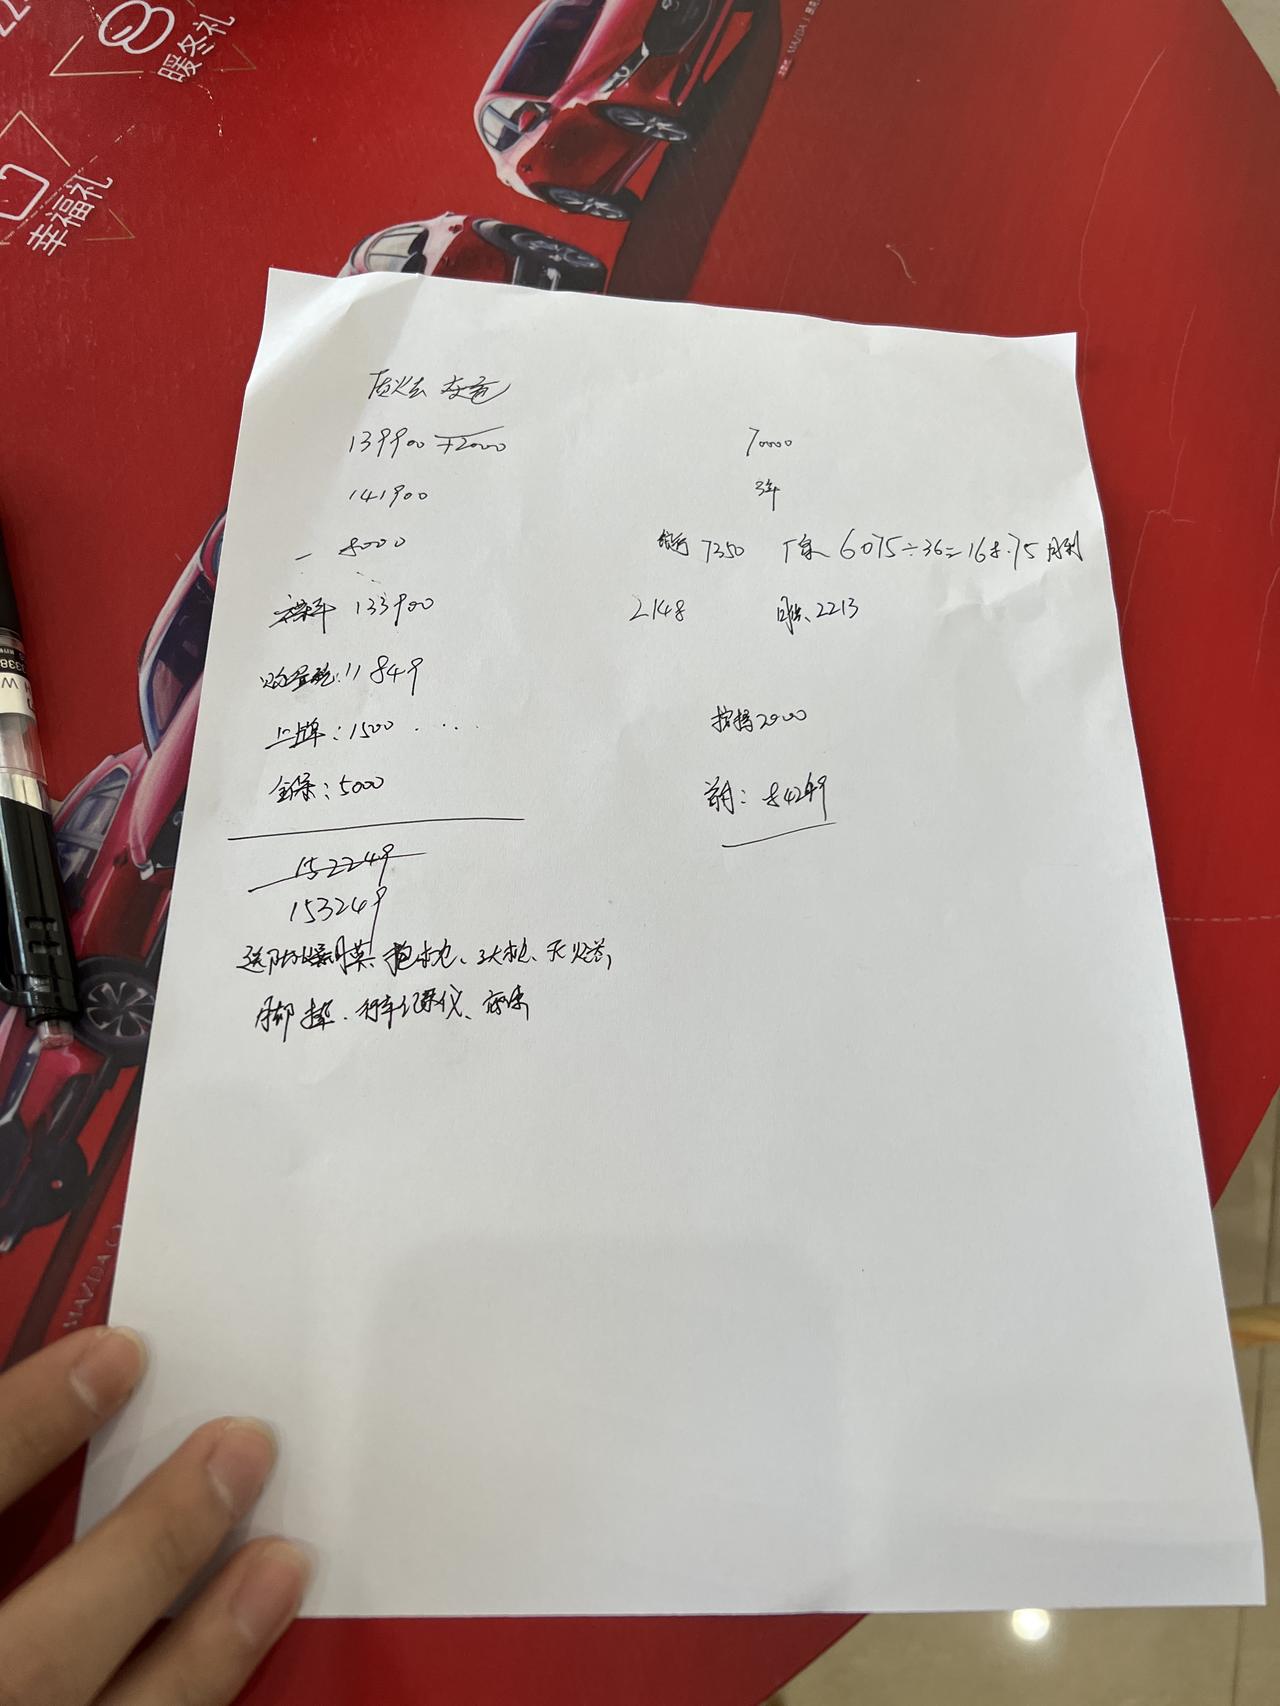 暖冬礼
幸福礼
MAZDA
139900 +2000
141900
- 8000
裸车 133900
购置税:11849
上牌:1500 ....
全保:5000
152249
153249
送防爆膜、抱枕、头枕、灭火器,
脚垫、行车记录仪、
70000
3年
7350 6075÷36=168.75 月利
2148 2213
按揭2000
首付:84249
MAZDA